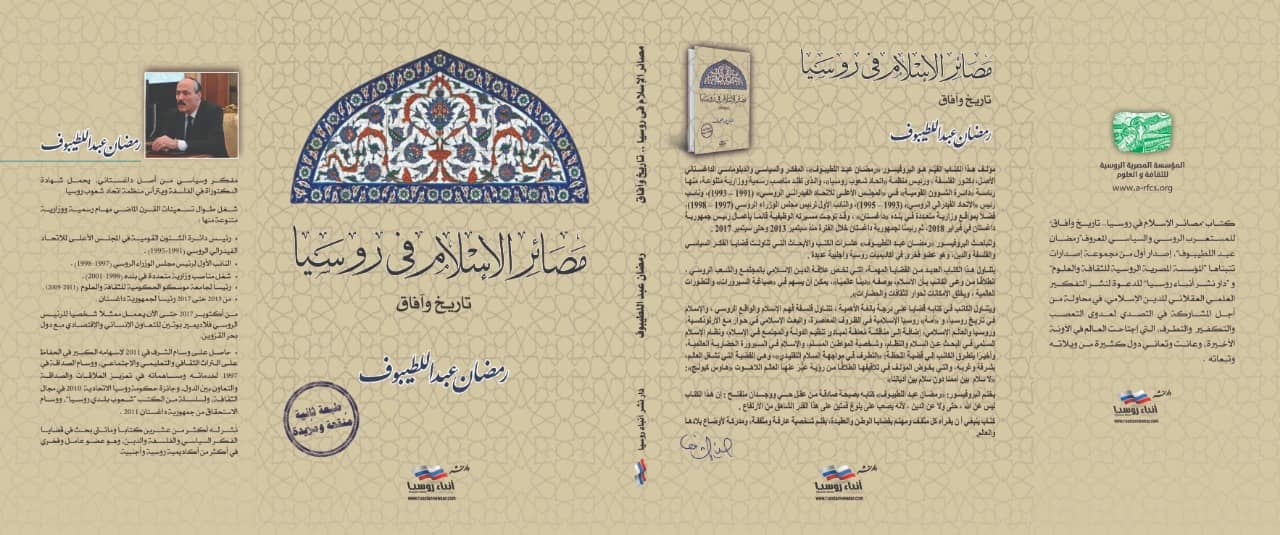 رمضان عبد اللطيبوف
مفكر وسياسي من أصل داغستاني، ويحمل شهادة
الدكتوراة في الفلسفة ويترأس منظمة اتحاد شعوب روسيا
شغل طوال تسعينات القرن الماضي مهام رسمية ووزارية
متنوعة منها:
- رئيس دائرة الشئون القومية في المجلس الأعلى للاتحاد
الفيدرالي الروسي (1991-1995).
- النائب الأول لرئيس مجلس الوزراء الروسي (1997-1998).
- شغل مناصب وزارية متعددة في بلده (1999-2001).
- رئيسا لجامعة موسكو الحكومية للثقافة والعلوم (2009-2011)
- من 2013 حتى 2017 رئيسا لجمهورية داغستان
من أكتوبر 2017 حتى الآن يعمل ممثلا شخصيا للرئيس
الروسي فلاديمير بوتين للتعاون الإنساني والاقتصادي مع دول
بحر القزوين.
- حاصل على وسام الشرف في 2011 لإسهامه الكبير في الحفاظ
على التراث الثقافي والتعليمي والاجتماعي، ووسام الصداقة في
1997 لخدماته ومساهماته في تعزيز العلاقات والصداقة
والتعاون بين الدول، وجائزة حكومة روسيا الاتحادية 2010 في مجال
الثقافة، ولسلسلة من الكتب "شعوب بلدي روسيا"، ووسام
الاستحقاق من جمهورية داغستان 2011.
نشر له أكثر من عشرين كتابا ومائتي بحث في قضايا
الفكر السياسي والفلسفة والدين، وهو عضو عامل وفخري
في أكثر من أكاديمية روسية وأجنبية
مصائر الإسلام في روسيا
تاريخ وآفاق
رمضان عبد اللطيبوف
طبعة ثانية
منقحة ومزيدة
دار نشر
أنباء روسيا
مصائر الإسلام في روسيا .. تاريخ وآفاق
رمضان عبد اللطيبوف
دار نشر أنباء روسيا
مصائر الإسلام في روسيا
تاريخ وآفاق
رمضان عبد اللطيبوف
مؤلف هذا الكتاب القيّم هو البروفيسور «رمضان عبد اللطيبوف»، المفكر والسياسي والدبلوماسي الداغستاني
الأصل، دكتور الفلسفة، ورئيس منظمة «اتحاد شعوب روسيا»، والذي تقلد مناصب رسمية ووزارية متنوعة، منها
رئاسة «دائرة الشؤون القومية» في «المجلس الأعلى للاتحاد الفيدرالي الروسي» (1991 – 1993)، ونائب
رئيس «الاتحاد الفيدرالي الروسي» (1993 – 1995)، والنائب الأول لرئيس مجلس الوزراء الروسي (1997 – 1998)،
فضلا بمواقع وزارية متعددة في بلده «داغستان»، وقد توجت مسيرته الوظيفية قائما بأعمال رئيس جمهورية
داغستان في فبراير 2018، ثم رئيسا لجمهورية داغستان خلال الفترة منذ سبتمبر 2013 وحتى سبتمبر 2017.
وللباحث البروفيسور «رمضان عبد اللطيبوف» عشرات الكتب والأبحاث التي تناولت قضايا الفكر السياسي
والفلسفة والدين، وهو عضو فخري في أكاديميات روسية وأجنبية عديدة.
يتناول هذا الكتاب العديد من القضايا المهمة، التي تخص علاقة الدين الإسلامي بالمجتمع والشعب الروسي،
انطلاقا من وعي الكاتب بأن الإسلام، بوصفه «دينا عالميا»، يمكن أن يسهم في «صياغة السيرورات» والتطورات
العالمية، ويخلق الإمكانات لحوار الثقافات والحضارات».
ويتناول الكاتب في كتابه قضايا على درجة بالغة الأهمية، تتناول فلسفة فهم الإسلام والواقع الروسي، والإسلام
في تاريخ روسيا، و«أمة» روسيا الإسلامية في الظروف المعاصرة، والبحث الإسلامي في حوار مع الأرثوذكسية،
وروسيا والعالم الإسلامي، إضافة إلى مناقشة لعلاقة لمبادئ تنظيم الدولة والمجتمع في الإسلام، ونظام الإسلام
السلمي في البحث عن السلام والنظام، وشخصية المواطن المسلم، والإسلام في السيرورة الحضارية العالمية،
وأخيرا يتطرق الكاتب إلى قضية اللحظة: «التطرف في مواجهة السلام التقليدي»، وهي القضية التي تشغل العالم،
بشرقه وغربه، والتي يخوض المؤلف في تلافيفها انطلاقا من رؤية عبّر عنها العالم اللاهوت «هانس كيونج»:
«لا سلام بين أممنا دون سلام بين أدياننا»
يختم البروفيسور: «رمضان عبد اللطيبوف» كتابه بصيحة صادقة من عقل حي ووجدان منفتح: إن هذا الكتاب
ليس عن الله، حتى ولا عن الدين، لأنه يصعب علي بلوغ قمتين على هذا القدر الشاهق من الارتفاع.
كتاب ينبغي أن يقرأه كل مثقف ومهتم بقضايا الوطن والعقيدة، بقلم شخصية عارفة ومثقفة، ومدركة لأوضاع بلادها
والعالم.
دار نشر
أنباء روسيا
المؤسسة المصرية الروسية
للثقافة و العلوم
www.a-rfcs.org
كتاب "مصائر الإسلام في روسيا.. تاريخ وآفاق"
للمستعرب الروسي والسياسي المعروف "رمضان
عبد اللطيبوف"، إصدار أول من مجموعة إصدارات
تتبناها "المؤسسة المصرية الروسية للثقافة والعلوم"
و "دار نشر أنباء روسيا" للدعوة لنشر التفكير
العلمي العقلاني للدين الإسلامي، في محاولة من
أجل المشاركة في التصدي لعدوى التعصب
والتكفير والتطرف، التي اجتاحت العالم في الآونة
الأخيرة، وعانت وتعاني دول كثيرة من ويلاته
وتبعاته.
دار نشر
أنباء روسيا